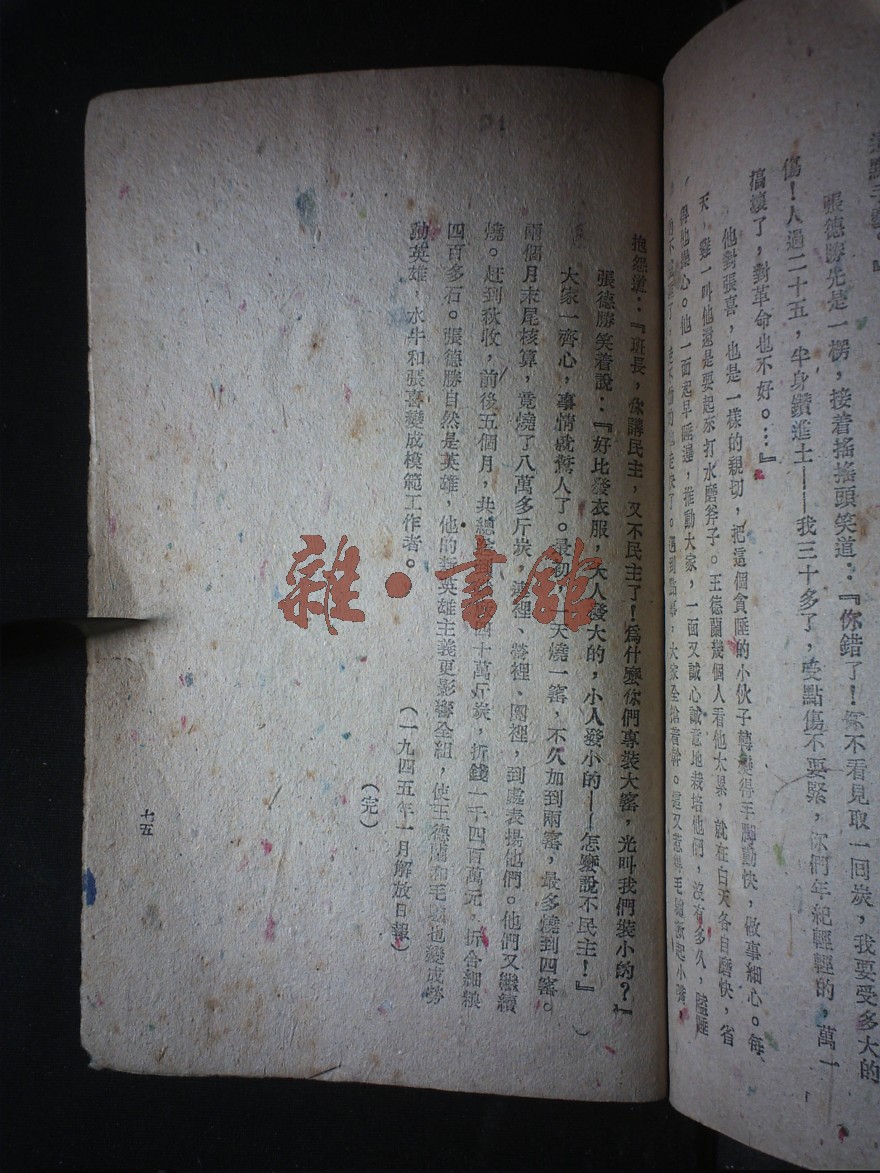 張德勝先是一楞，接着搖搖頭笑道：『你錯了！你不看見取一回炭，我要受多大的
傷！人過二十五，半身鑽進土——我三十多了，受點傷不要緊，你們年紀輕輕的，萬一
搞壞了，對革命也不好。…』
他對張喜，也是一樣的親切，把這個貪睡的小伙子轉變得手脚動快，做事細心。每
天，雞一叫他還是要起來打水磨斧子。王德蘭幾個人看他太累，就在白天各自磨快，省
得他操心。他一面起早睡遲，推動大家，一面又誠心誠意地栽培他們，沒有多久，瞌睡
大家全搶着幹。這又惹
抱怨道：『班長，你講民主，又不民主了！爲什麼你們專裝大窰，光叫我們裝小的？』
張德勝笑着說：『好比發衣服，大人發大的，小人發小的——怎麼說不民主！』
大家一齊心，事情就驚人了。最初一天燒一窰，不久加到兩窰，最多燒到四窰。
兩個月末尾核算，竟燒了八萬多斤炭，連裡、營裡、團裡，到處表揚他們。他們又繼續
燒。赶到秋收，前後五個月，共總 四十萬斤炭，折錢一千四百萬元，折合細糧
四百多石。張德勝自然是英雄，他的新英雄主義更影響全組，使王德蘭和毛 也變成勞
動英雄，水牛和張喜變成模範工作者。
（一九四五年一月解放日報）
（完）
七五
雜·書館